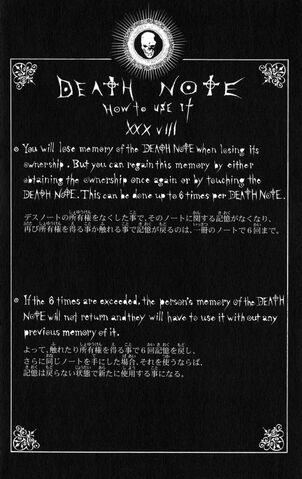 DEATH NOTE
HOW TO USE IT
XXXVIII
You will lose memory of the DEATH NOTE when losing its
ownership. But you can regain this memory by either
obtaining the ownership once again or by touching the
DEATH NOTE. This can be done up to 6 times per DEATH NOTE.
デスノートの所有権をなくした事で、そのノートに関する記憶がなくなり、
再び所有権を得る事か触れる事で記憶が戻るのは、一冊のノートで6回まで。
If the 6 times are exceeded, the person's memory of the DEATH
NOTE will not return and they will have to use it without any
previous memory of it.
よって、触れたり所有権を得る事で6回記憶を戻し、
さらに同じノートを手にした場合、それを使うならば、
記憶は戻らない状態で新たに使用する事になる。